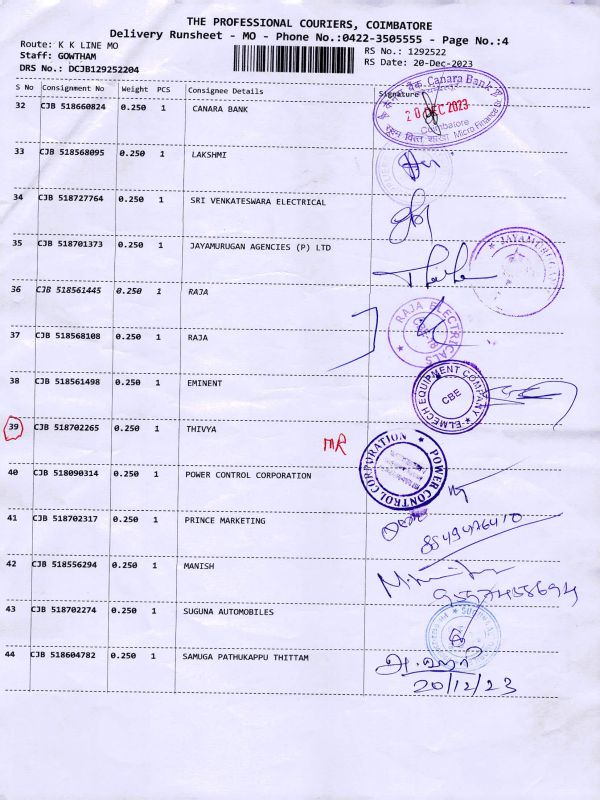 THE PROFESSIONAL COURIERS, COIMBATORE
Delivery Runsheet - MO - Phone No.:0422-3505555 - Page No.:4
Route: K K LINE MO
RS No.: 1292522
Staff: GOWTHAM
RS Date: 20-Dec-2023
DRS No.: DCJB129252204
S No Consignment No Weight PCS Consignee Details Signature
32 CJB 518660824 0.250 1 CANARA BANK
Canara Bank
20 DEC 2023
Coimbatore
Micro Finance
33 CJB 518568095 0.250 1 LAKSHMI
34 CJB 518727764 0.250 1 SRI VENKATESWARA ELECTRICAL
35 CJB 518701373 0.250 1 JAYAMURUGAN AGENCIES (P) LTD
36 CJB 518561445 0.250 1 RAJA
RAJA ELECTRICALS
37 CJB 518568108 0.250 1 RAJA
38 CJB 518561498 0.250 1 EMINENT
ELMECH EQUIPMENT COMPANY
CBE
39 CJB 518702265 0.250 1 THIVYA
MR
POWER CONTROL CORPORATION
40 CJB 518090314 0.250 1 POWER CONTROL CORPORATION
41 CJB 518702317 0.250 1 PRINCE MARKETING
42 CJB 518556294 0.250 1 MANISH
43 CJB 518702274 0.250 1 SUGUNA AUTOMOBILES
44 CJB 518604782 0.250 1 SAMUGA PATHUKAPPU THITTAM
20/12/23